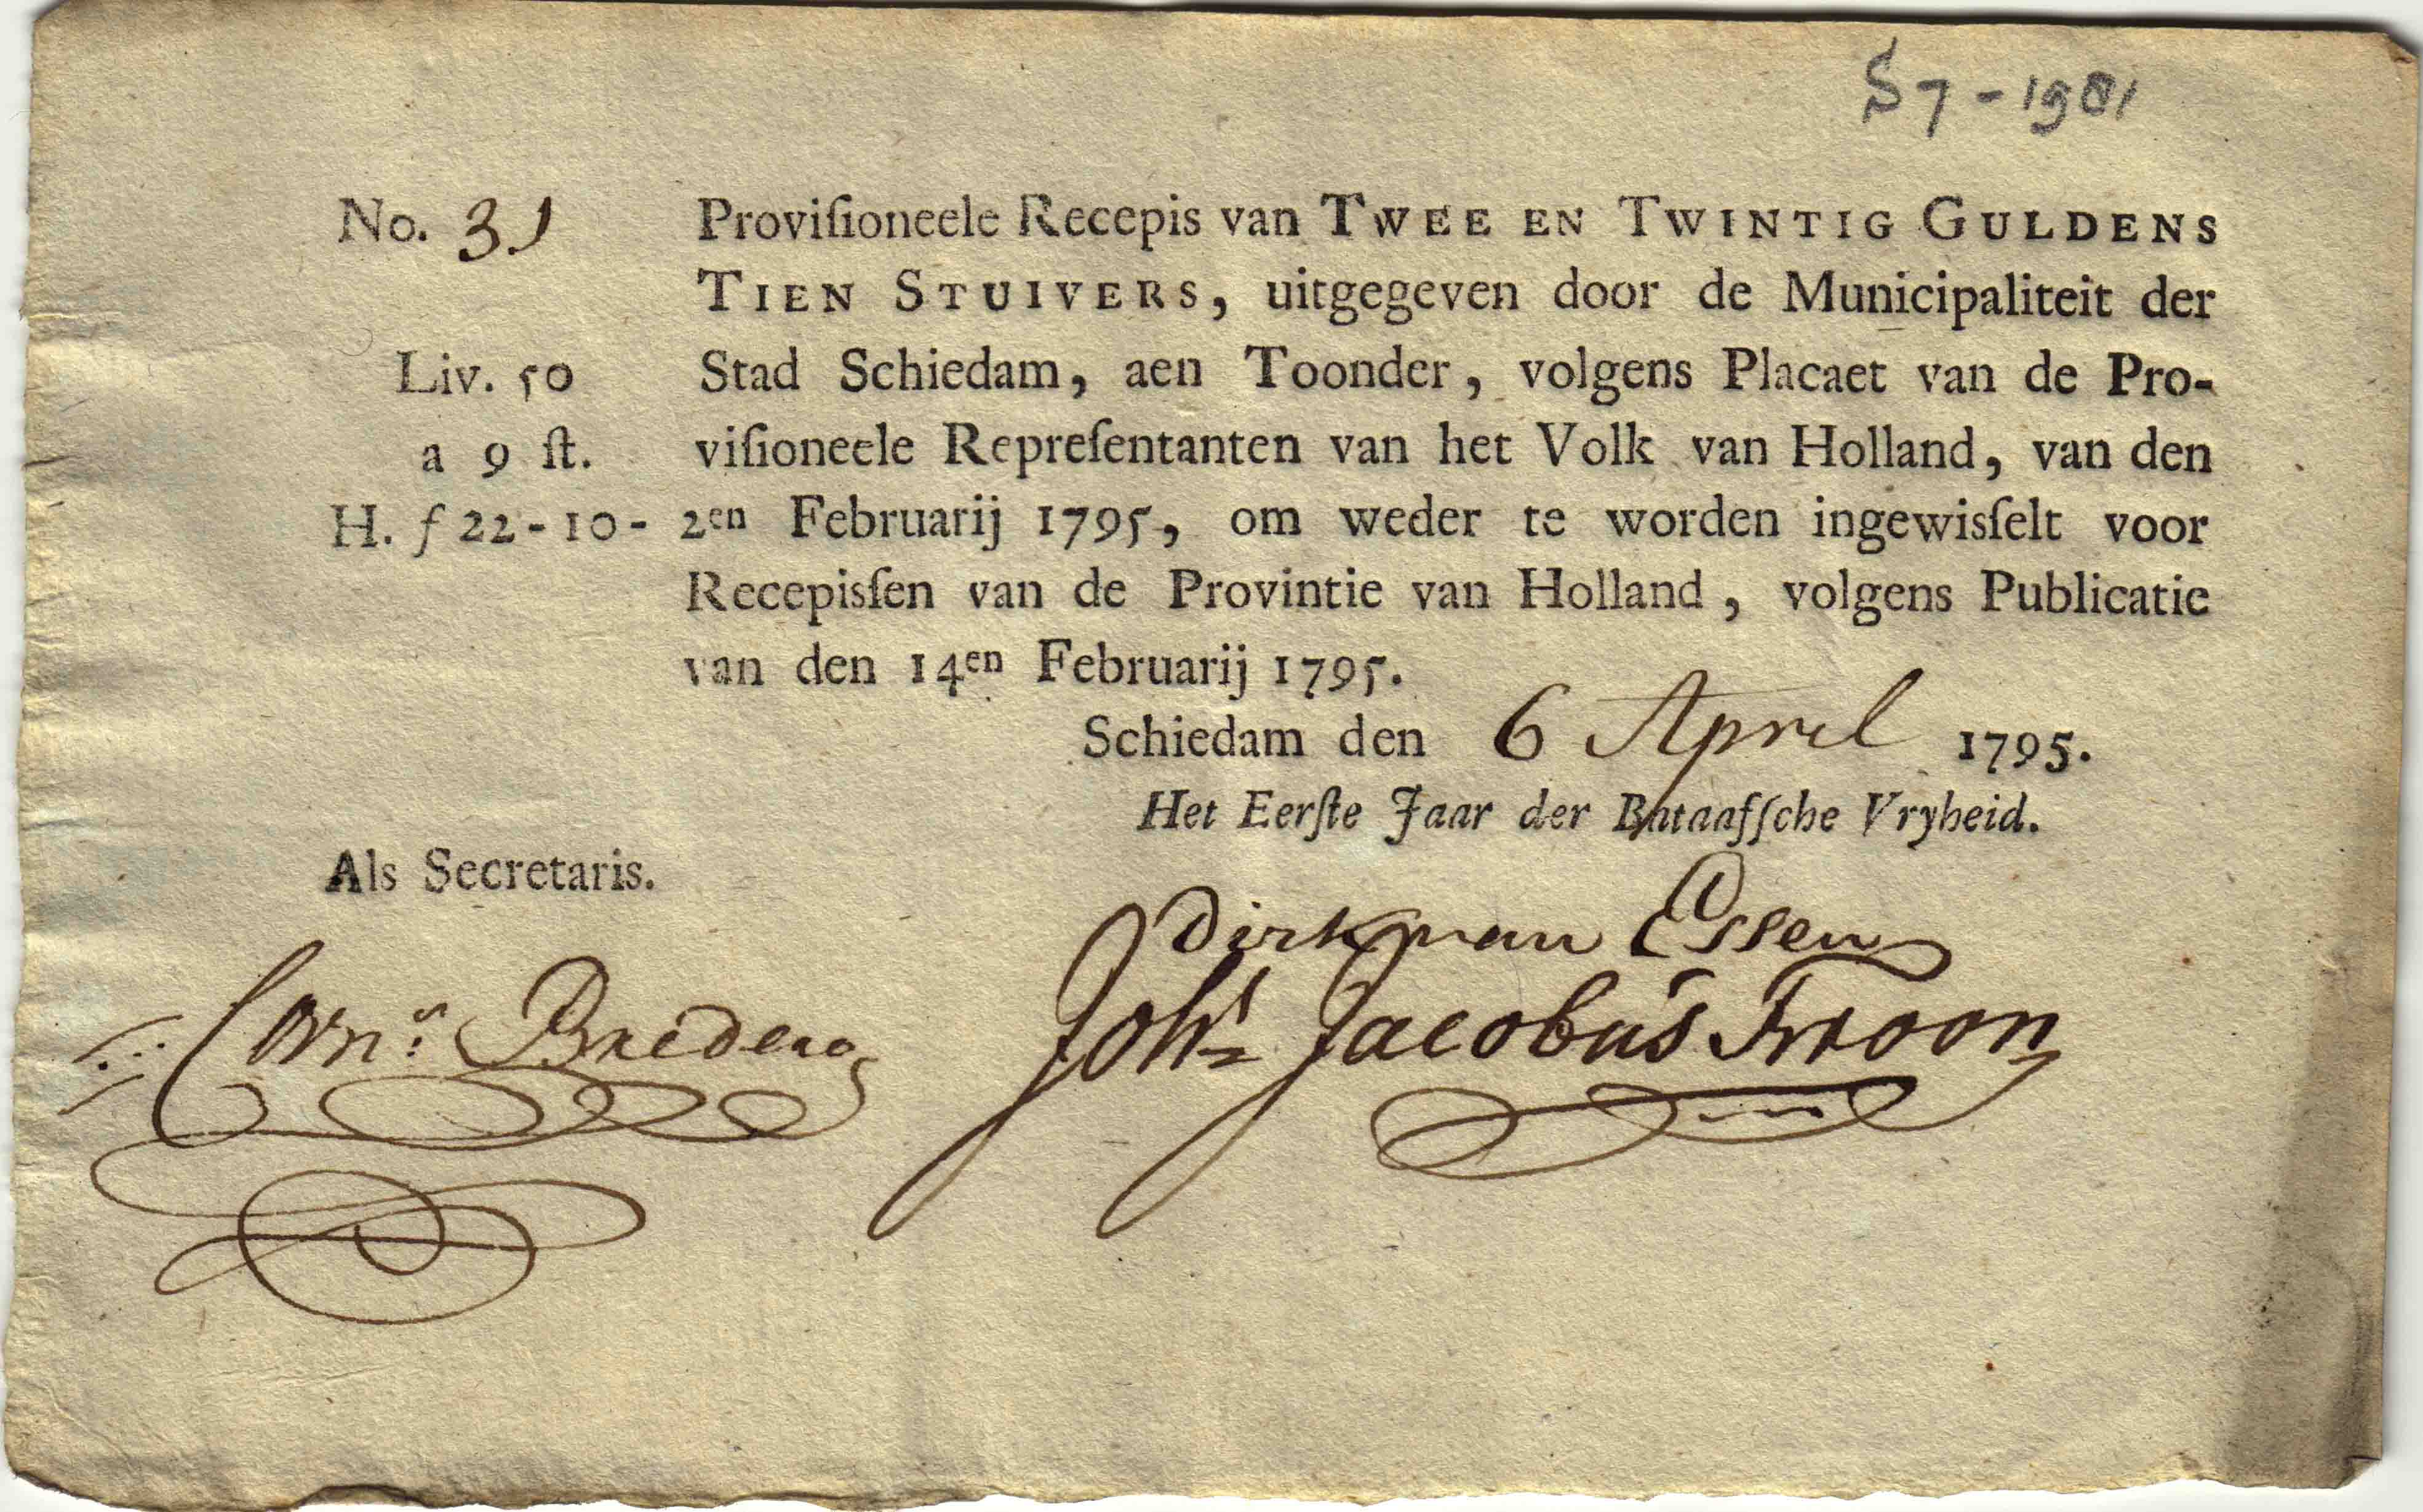 S7-1981
No. 31 Proviſioneele Recepis van TWEE EN TWINTIG GULDENS
TIEN STUIVERS, uitgegeven door de Municipaliteit der
Liv. 50 Stad Schiedam, aen Toonder, volgens Placaet van de Pro-
a 9 ſt. viſioneele Repreſentanten van het Volk van Holland, van den
H. f 22-10- 2en Februarij 1795, om weder te worden ingewisſelt voor
Recepisſen van de Provintie van Holland, volgens Publicatie
van den 14en Februarij 1795.
Schiedam den 6 April 1795.
Het Eerſte Jaar der Bataafſche Vryheid.
Als Secretaris.
Dirk van Essen
Corns. Bredero
Johs Jacobus Troon